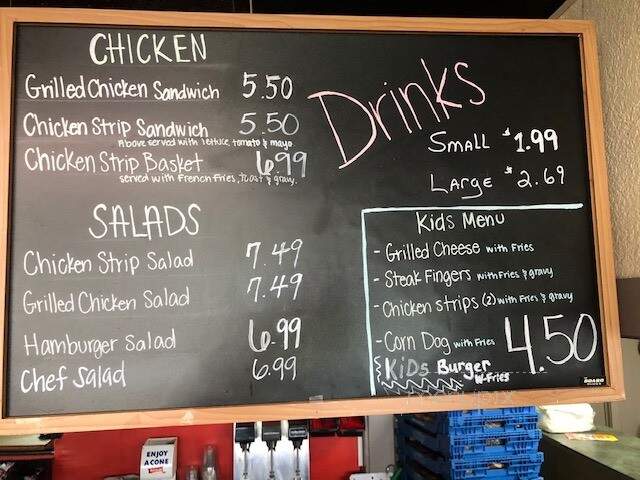 CHICKEN
Grilled Chicken Sandwich 5.50
Chicken Strip Sandwich 5.50
Above served with lettuce, tomato & mayo
Chicken Strip Basket 6.99
served with French Fries, toast & gravy.
SALADS
Chicken Strip Salad 7.49
Grilled Chicken Salad 7.49
Hamburger Salad 6.99
Chef Salad 6.99
Drinks
SMALL $1.99
LARGE $2.69
Kids Menu
- Grilled Cheese with Fries
- Steak Fingers with Fries & gravy
- Chicken strips (2) with Fries & gravy
- Corn Dog with Fries 4.50
KiDS Burger
W-Fries
ENJOY
A CONE